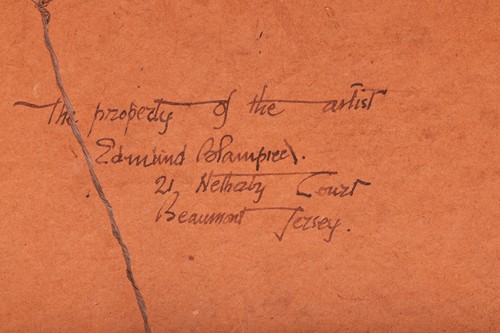 The property of the artist
Edmund Blampied.
21, Netherby Court
Beaumont Jersey.